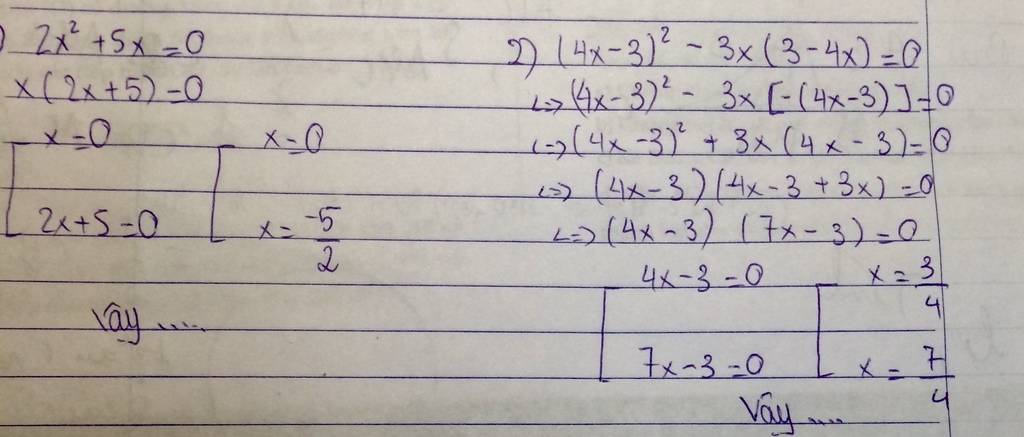 ) 2x² + 5x = 0
x(2x+5) = 0
[ x = 0 [ x = 0
2x+5 = 0 x = -5/2
Vậy .....
2) (4x-3)² - 3x(3-4x) = 0
<=> (4x-3)² - 3x[-(4x-3)] = 0
<=> (4x-3)² + 3x(4x-3) = 0
<=> (4x-3)(4x-3+3x) = 0
<=> (4x-3) (7x-3) = 0
[ 4x-3 = 0 [ x = 3/4
7x-3 = 0 x = 7/4
Vậy .....